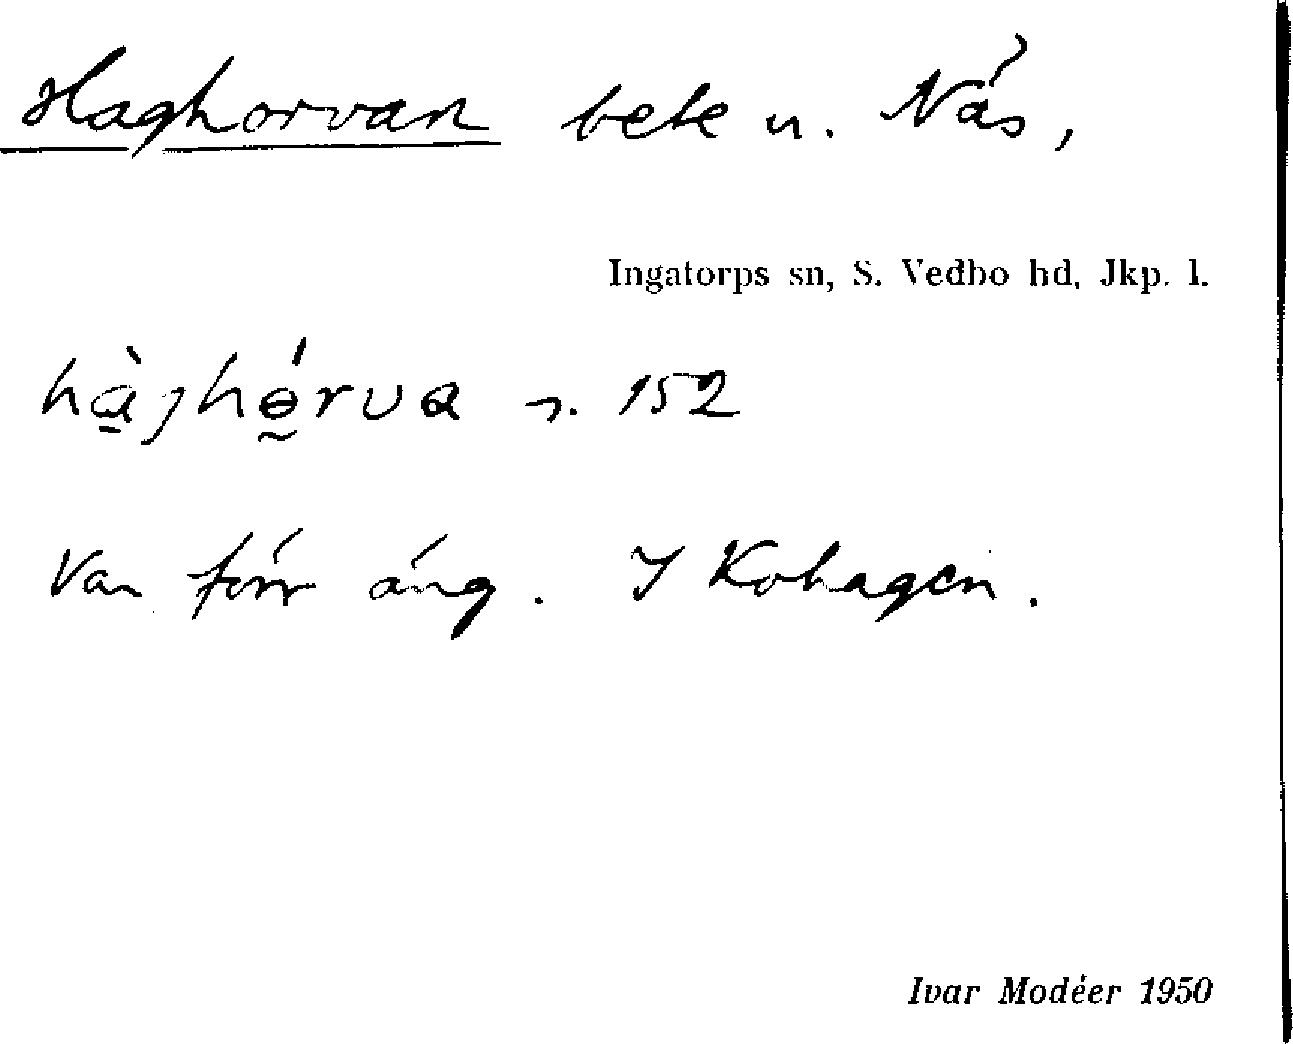 Haghorvan bete u. Näs,
Ingatorps sn, S. Vedbo hd, Jkp. l.
hàjhǿrva s. 152
Var förr äng. I Kohagen.
Ivar Modéer 1950